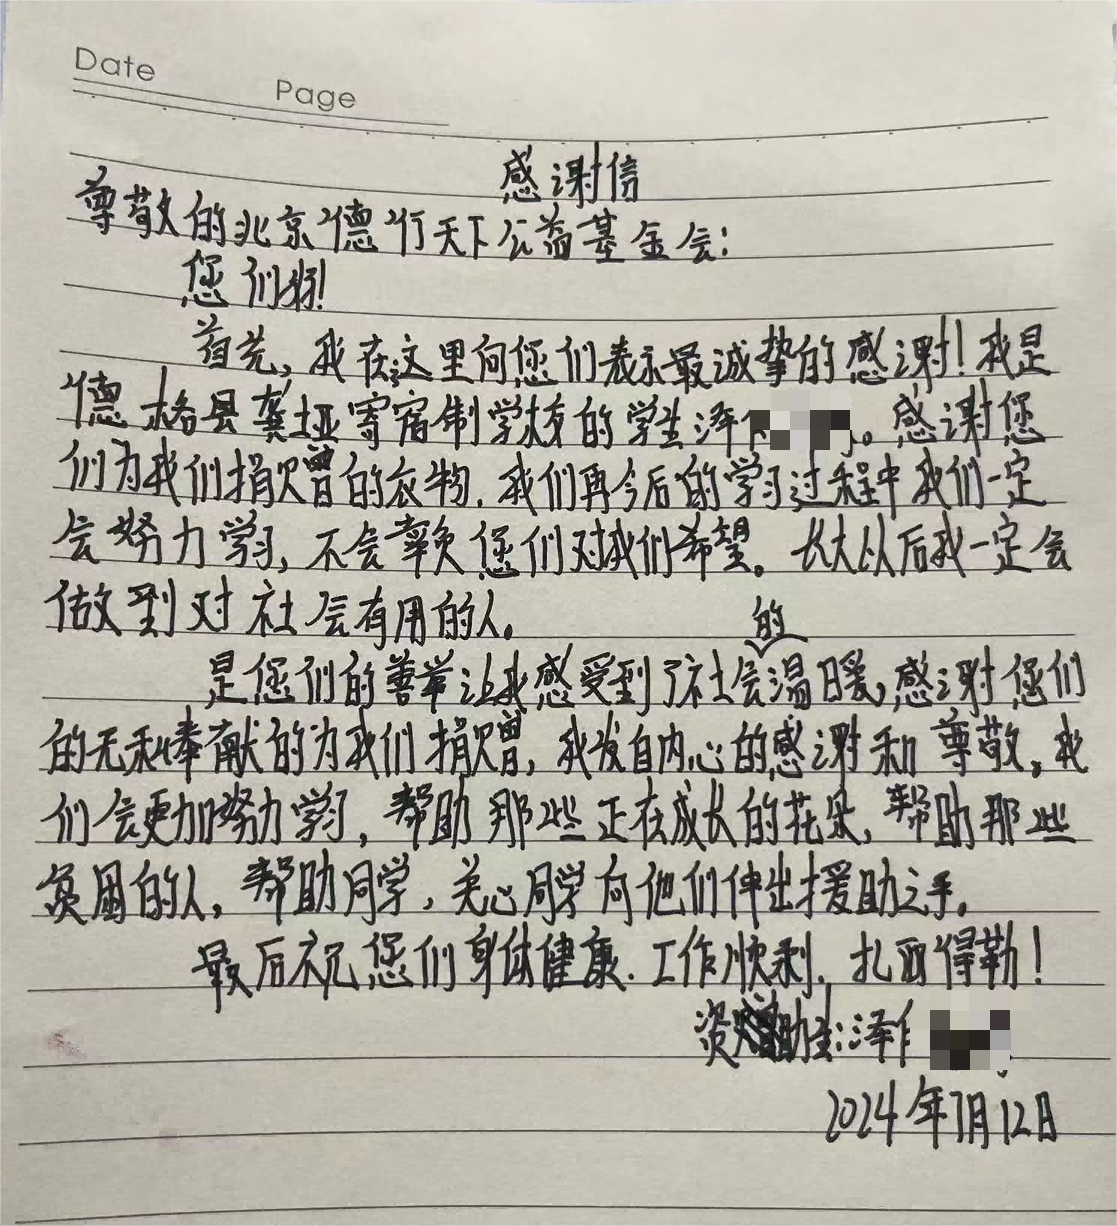 Date
Page
感谢信
尊敬的北京德行天下公益基金会:
您们好!
首先,我在这里向您们表示最诚挚的感谢!我是
德格县龚垭寄宿制学校的学生泽。感谢您
们为我们捐赠的衣物.我们再今后的学习过程中我们一定
会努力学习,不会辜负您们对我们希望。长大以后我一定会
做到对社会有用的人。
是您们的善举让我感受到了社会的温暖,感谢您们
的无私奉献的为我们捐赠,我发自内心的感谢和尊敬。我
们会更加努力学习,帮助那些正在成长的花朵,帮助那些
贫困的人,帮助同学,关心同学向他们伸出援助之手。
最后祝您们身体健康.工作顺利.扎西得勒!
资助生:泽
2024年7月12日